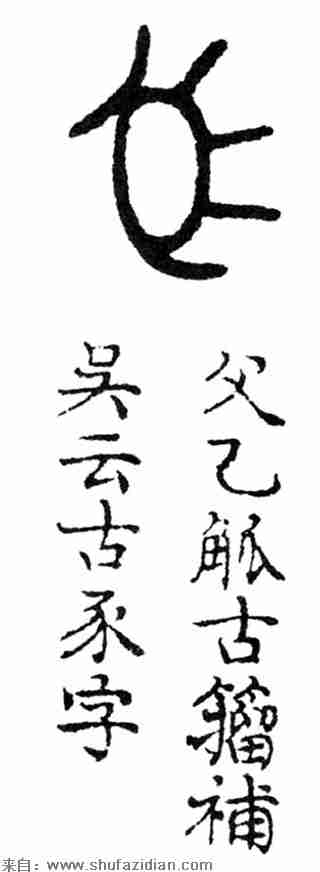 父己觚古籀補
吳云古豕字
来自：www.shufazidian.com